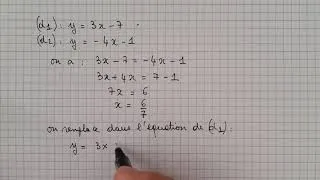 (d1): y = 3x - 7
(d2): y = -4x - 1
on a : 3x - 7 = -4x - 1
3x + 4x = 7 - 1
7x = 6
x = 6/7
on remplace dans l'équation de (d1):
y = 3x